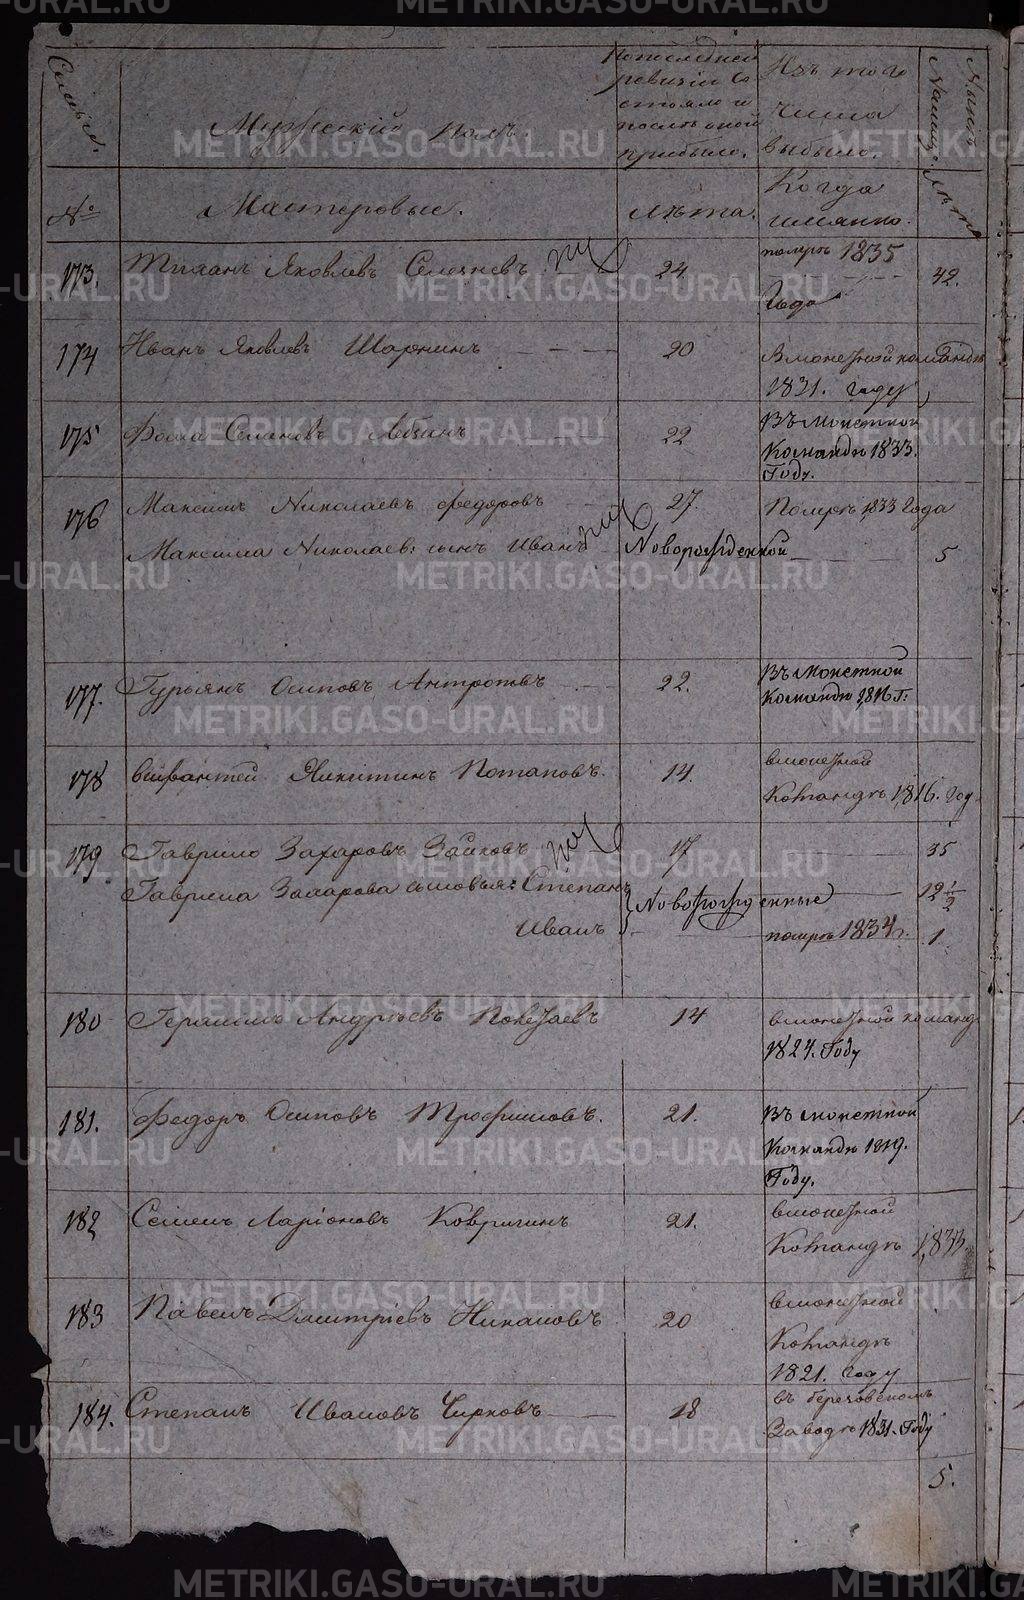 Семьи.
Мужеский полъ.
По последней ревизіи состояло и после оной прибыло.
Изъ того числа выбыло.
Ныне на лицо.
№
Мастеровые.
Лѣта.
Когда имянно.
Лѣта
173. Яковлевъ Селезневъ 24 померъ 1835 года 42.
174 Иванъ Яковлевъ 20 В монетной командѣ 1831. году
175 Фома Семеновъ 22 Въ монетной Командѣ 1833. Году.
176 Максимъ Николаевъ Федоровъ 27. Помръ 1833 Года
Максима Николаев: сынъ Иванъ Новорожденной 5
177. Гурьянъ Осиповъ 22. Въ монетной Командѣ Г.
178 Никитинъ Потаповъ. 14. в монетной Командѣ 1816. Год
179 Гаврило Захаровъ Зайковъ 17 35
Гаврила Захарова сыновья: Степанъ Новорожденные 12 1/2
Иванъ помръ 1834 г. 1
180 Герасимъ Андрѣевъ 14 в монетной команд 1824. Году
181. Федоръ Осиповъ Трофимовъ. 21. Въ монетной Командѣ 1819. Году.
182 Семенъ Ларіоновъ Ковригинъ 21. в монетной Командѣ 1833
183 Павелъ Дмитріевъ 20 в монетной Командѣ 1821. году
184. Степанъ Ивановъ Чирковъ 18 въ березовскомъ Заводѣ 1831. Году
5.
METRIKI.GASO-URAL.RU